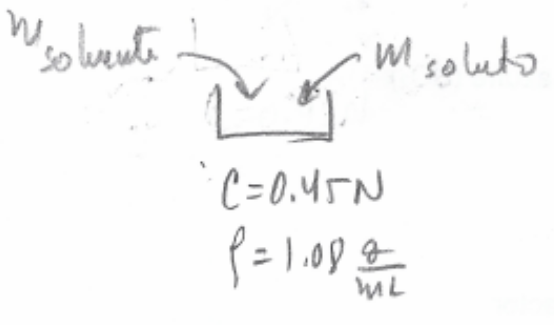 m solvente
m soluto
C=0.45N
ρ=1.08 g/mL